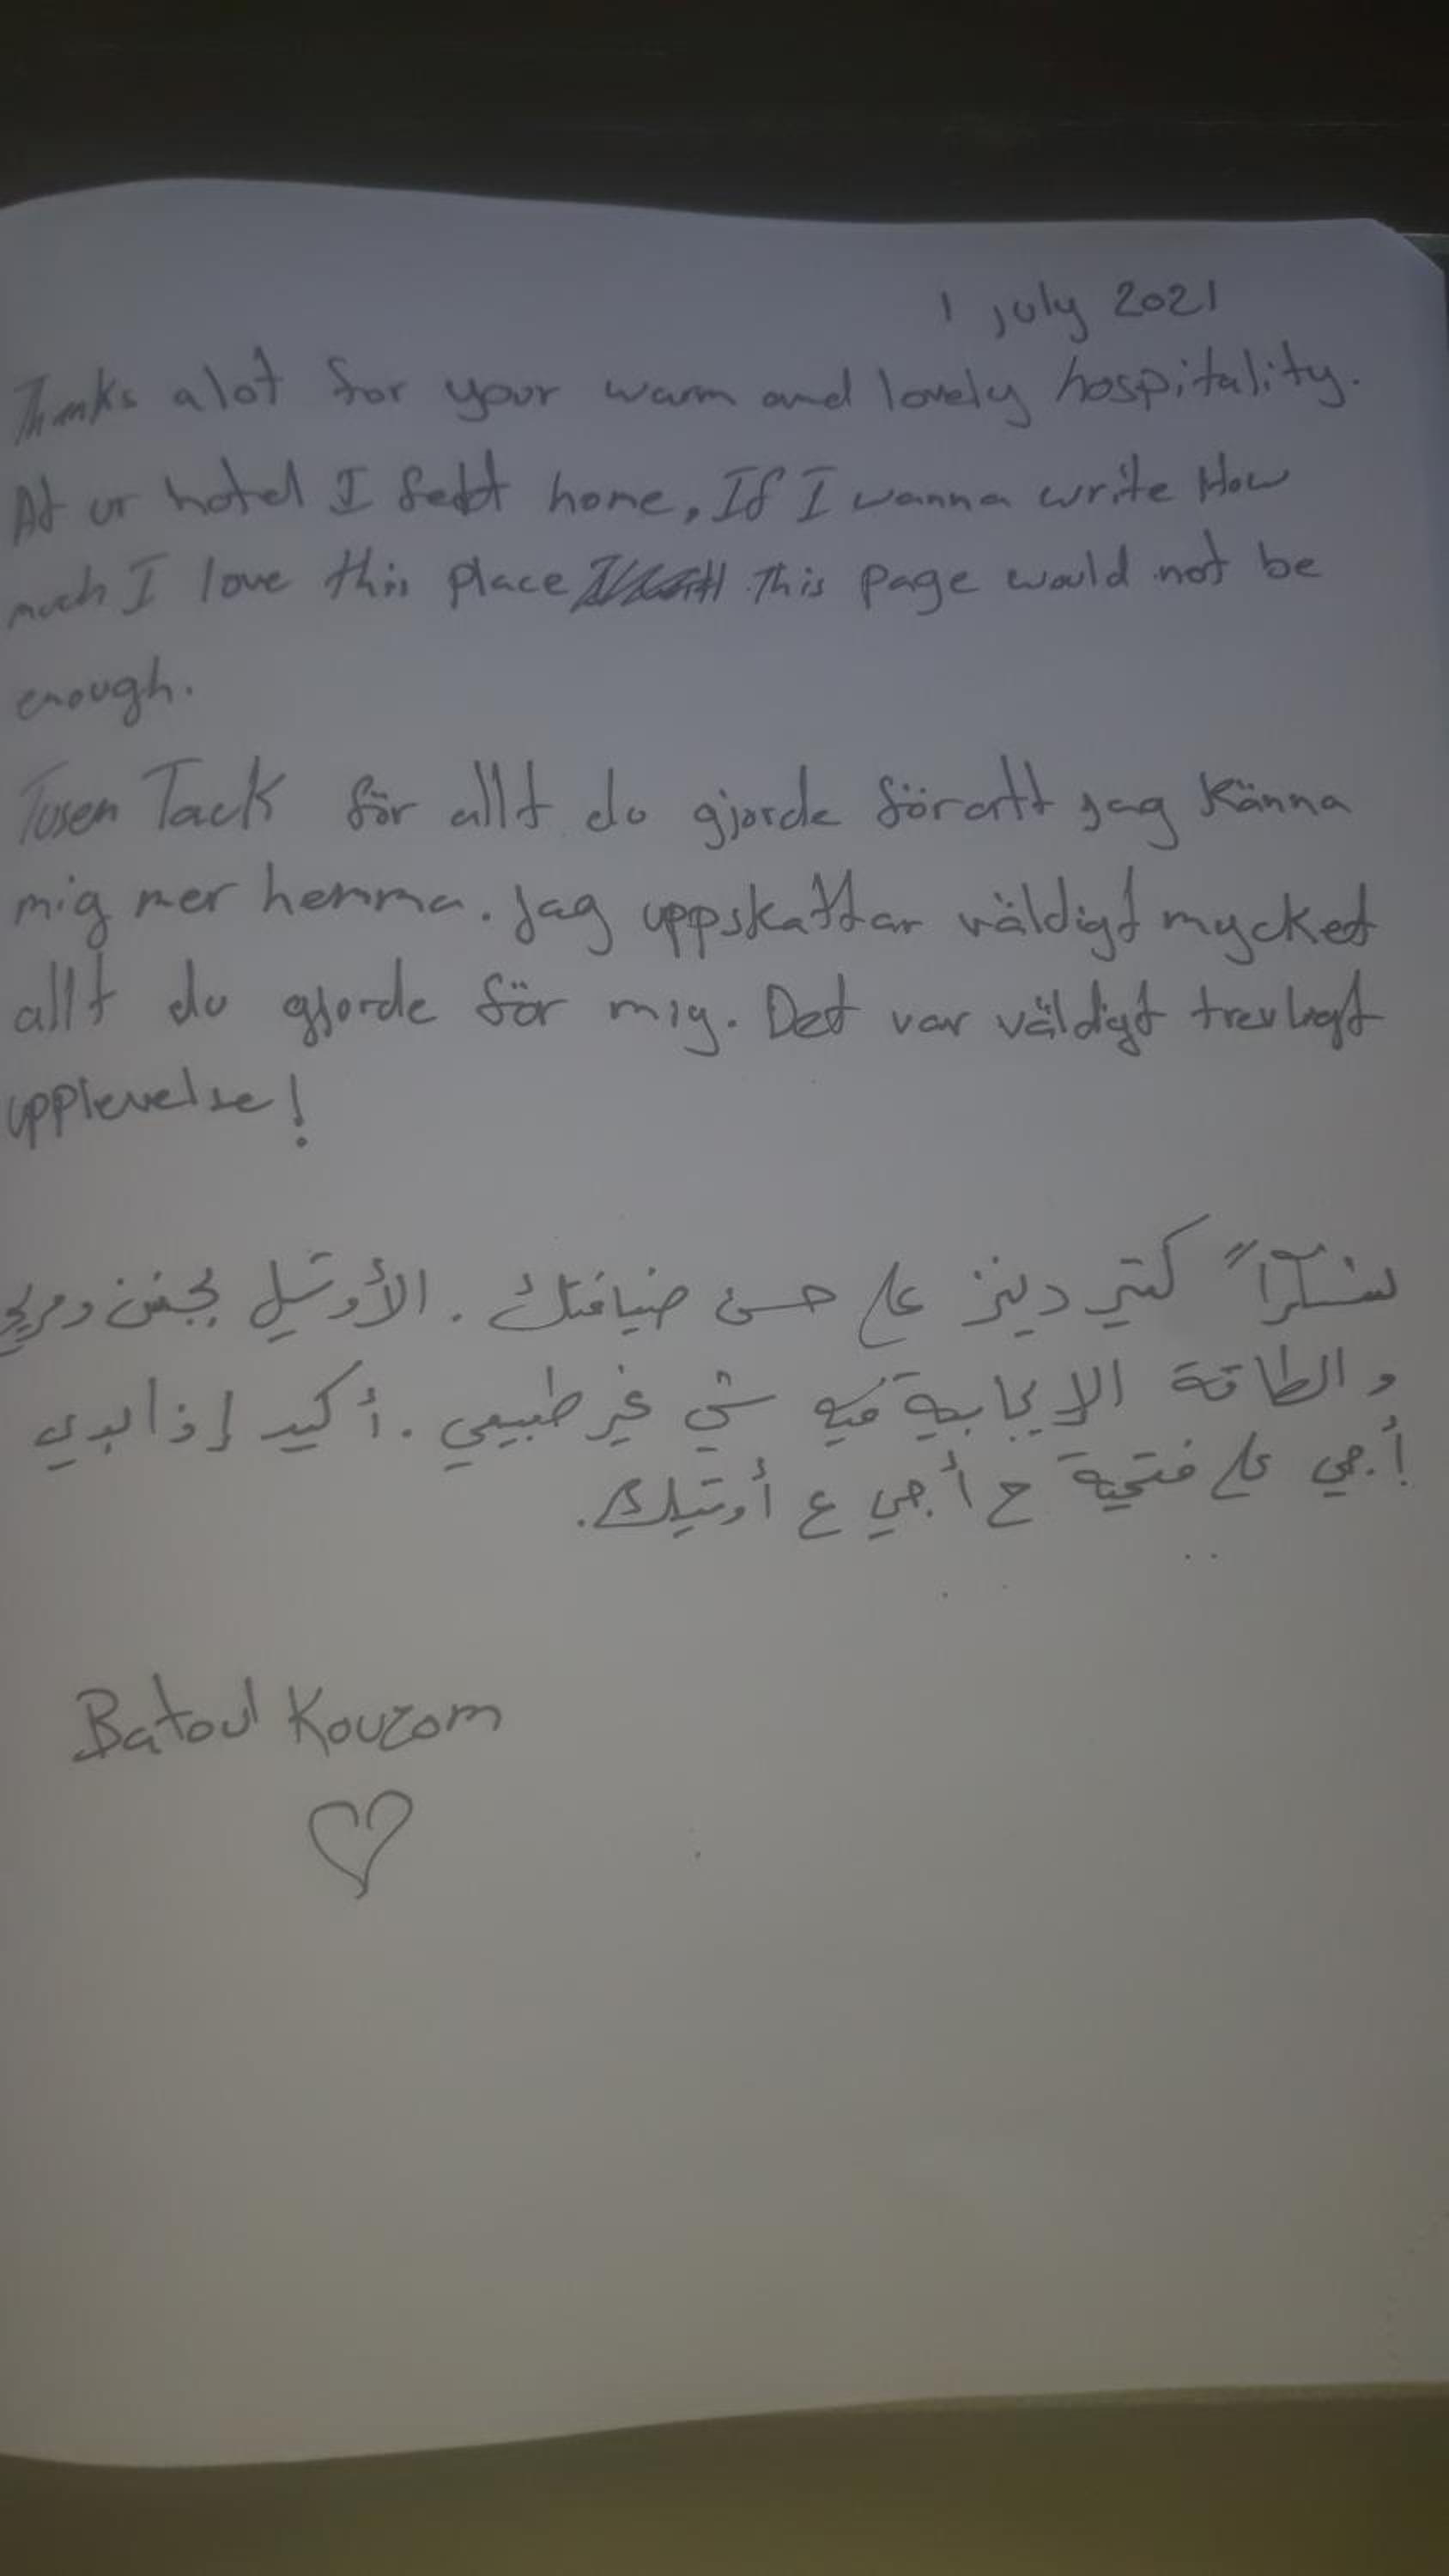 1 July 2021
Thanks a lot for your warm and lovely hospitality.
At ur hotel I felt home, If I wanna write How
much I love this place This page would not be
enough.
Tusen Tack för allt du gjorde för att jag Känna
mig mer hemma. Jag uppskattar väldigt mycket
allt du gjorde för mig. Det var väldigt trevligt
upplevelse!
شكراً كتير دينز على حسن ضيافتك. الأوتيل بجنن ومريح
والطاقة الإيجابية فيه شي غير طبيعي. أكيد إذا بدي
أجي على فتحية ح أجي ع أوتيلك.
Batoul Kouzom